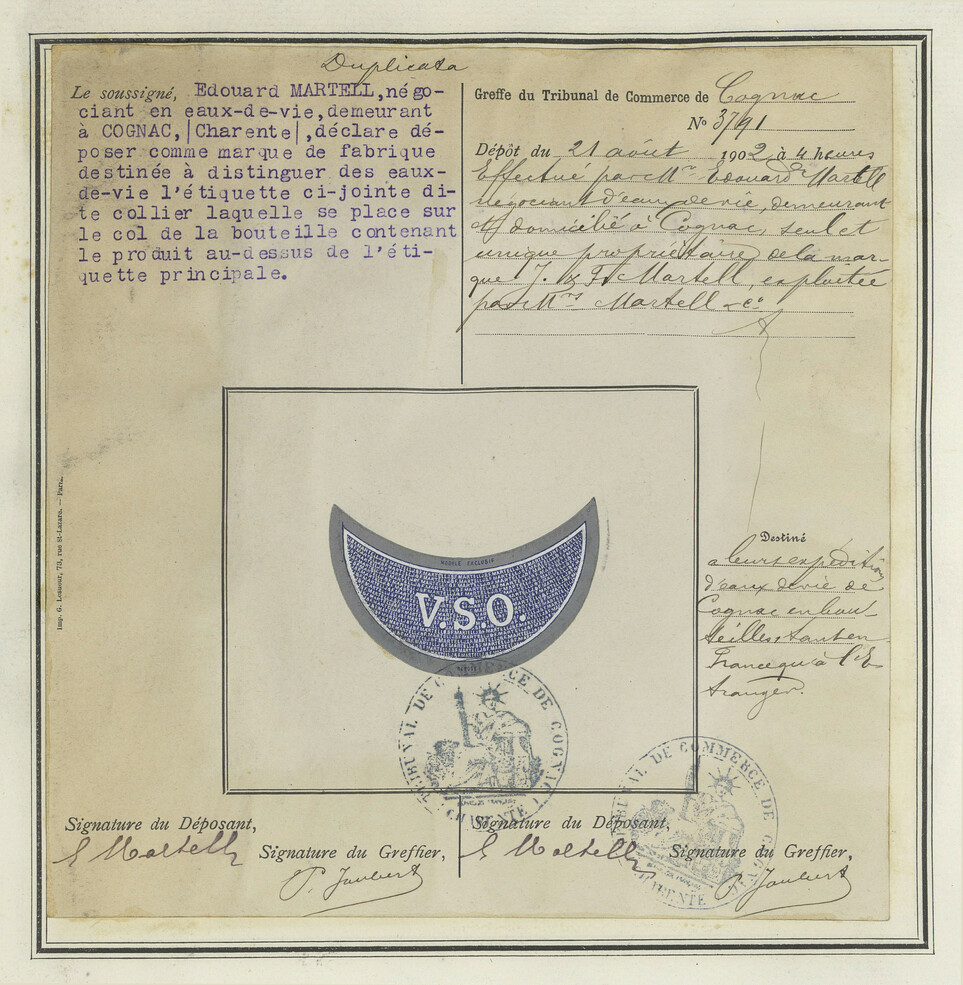 Duplicata
Le soussigné, Edouard MARTELL, négo-
ciant en eaux-de-vie, demeurant
à COGNAC, |Charente|, déclare dé-
poser comme marque de fabrique
destinée à distinguer des eaux-
de-vie l'étiquette ci-jointe di-
te collier laquelle se place sur
le col de la bouteille contenant
le produit au-dessus de l'éti-
quette principale.
Greffe du Tribunal de Commerce de Cognac
No 3791
Dépôt du 21 août 1902 à 4 heures
Effectué par Mr Edouard Martell
négociant d'eaux de vie, demeurant
et domicilié à Cognac, seul et
unique propriétaire de la mar-
que J. & F. Martell, exploitée
par Mrs Martell & Co
Imp. G. Lesueur, 73, rue St-Lazare. — Paris.
MODÈLE EXCLUSIF
V.S.O.
Destiné
a leurs expéditions
d'eaux de vie de
Cognac en bou-
teilles tant en
France qu'à l'É
tranger.
TRIBUNAL DE COMMERCE DE COGNAC
CHARENTE
TRIBUNAL DE COMMERCE DE COGNAC
CHARENTE
Signature du Déposant,
E Martell
Signature du Greffier,
P. Joubert
Signature du Déposant,
E Martell
Signature du Greffier,
P. Joubert